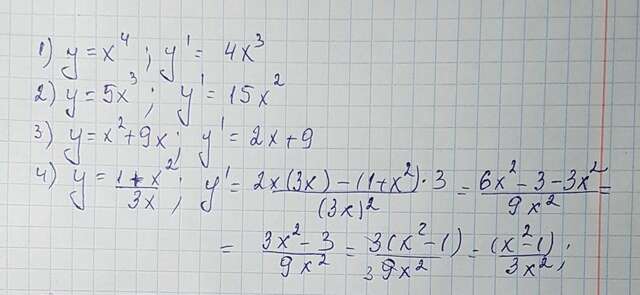 1) y = x⁴ ; y' = 4x³
2) y = 5x³ ; y' = 15x²
3) y = x² + 9x ; y' = 2x + 9
4) y = (1 + x²)/(3x) ; y' = (2x(3x) − (1 + x²) · 3)/(3x)² = (6x² − 3 − 3x²)/(9x²) =
= (3x² − 3)/(9x²) = 3(x² − 1)/(₃9x²) = (x² − 1)/(3x²) ;